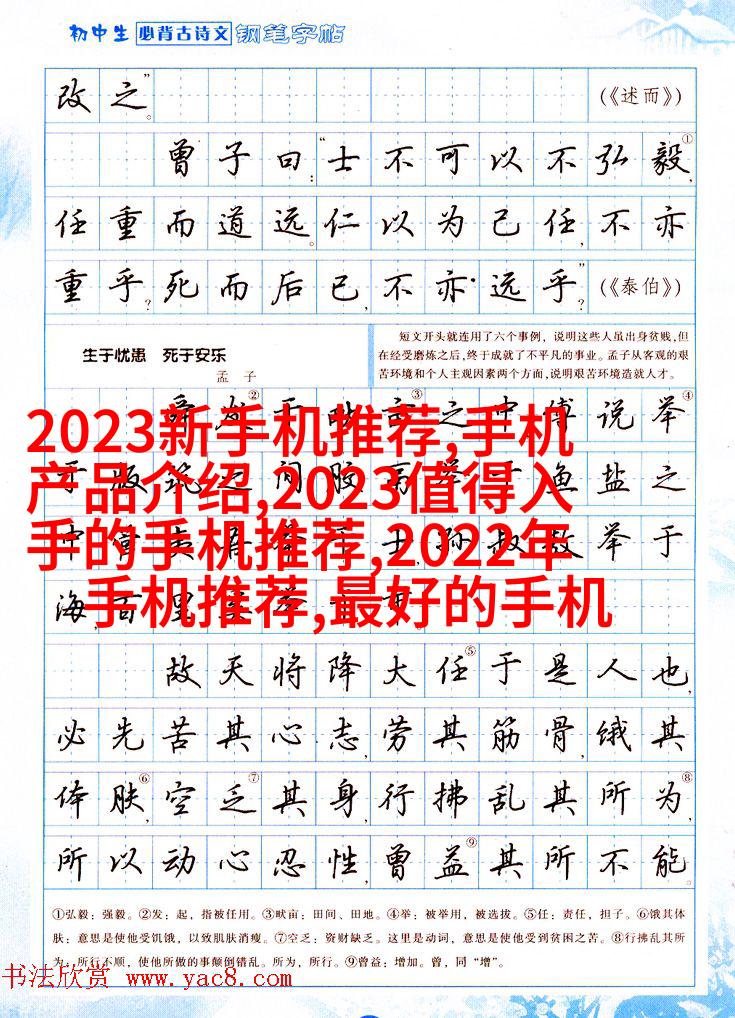 初中生 必背古诗文 钢笔字帖
改之。” (《述而》)
曾子曰：“士不可以不弘毅①，
任重而道远。仁以为己任，不亦
重乎？死而后已，不亦远乎？” (《泰伯》)
生于忧患 死于安乐
孟子
短文开头就连用了六个事例，说明这些人虽出身贫贱，但
在经受磨炼之后，终于成就了不平凡的事业。孟子从客观的艰
苦环境和个人主观因素两个方面，说明艰苦环境造就人才。
舜发②于 ③之中 傅说举④
2023新手机推荐,手机
于版筑之间 胶鬲举于鱼盐之
产品介绍,2023值得入
中 举于士，孙叔敖举于
手的手机推荐,2022年
海，百里奚举
手机推荐,最好的手机
故天将降大任⑤于是人也，
必先苦其心志，劳其筋骨，饿其
体肤⑥，空乏⑦其身，行拂乱其所为⑧，
所以动心忍性，曾益⑨其所不能。
①弘毅：强毅。②发：起，指被任用。③畎亩：田间、田地。④举：被举用，被选拔。⑤任：责任，担子。⑥饿其体
肤：意思是使他受饥饿，以致肌肤消瘦。⑦空乏：资财缺乏。这里是动词，意思是使他受到贫困之苦。⑧行拂乱其所
为：所行不顺，使他所做的事颠倒错乱。所为，所行。⑨曾益：增加。曾，同“增”。
书法欣赏 www.yac8.com